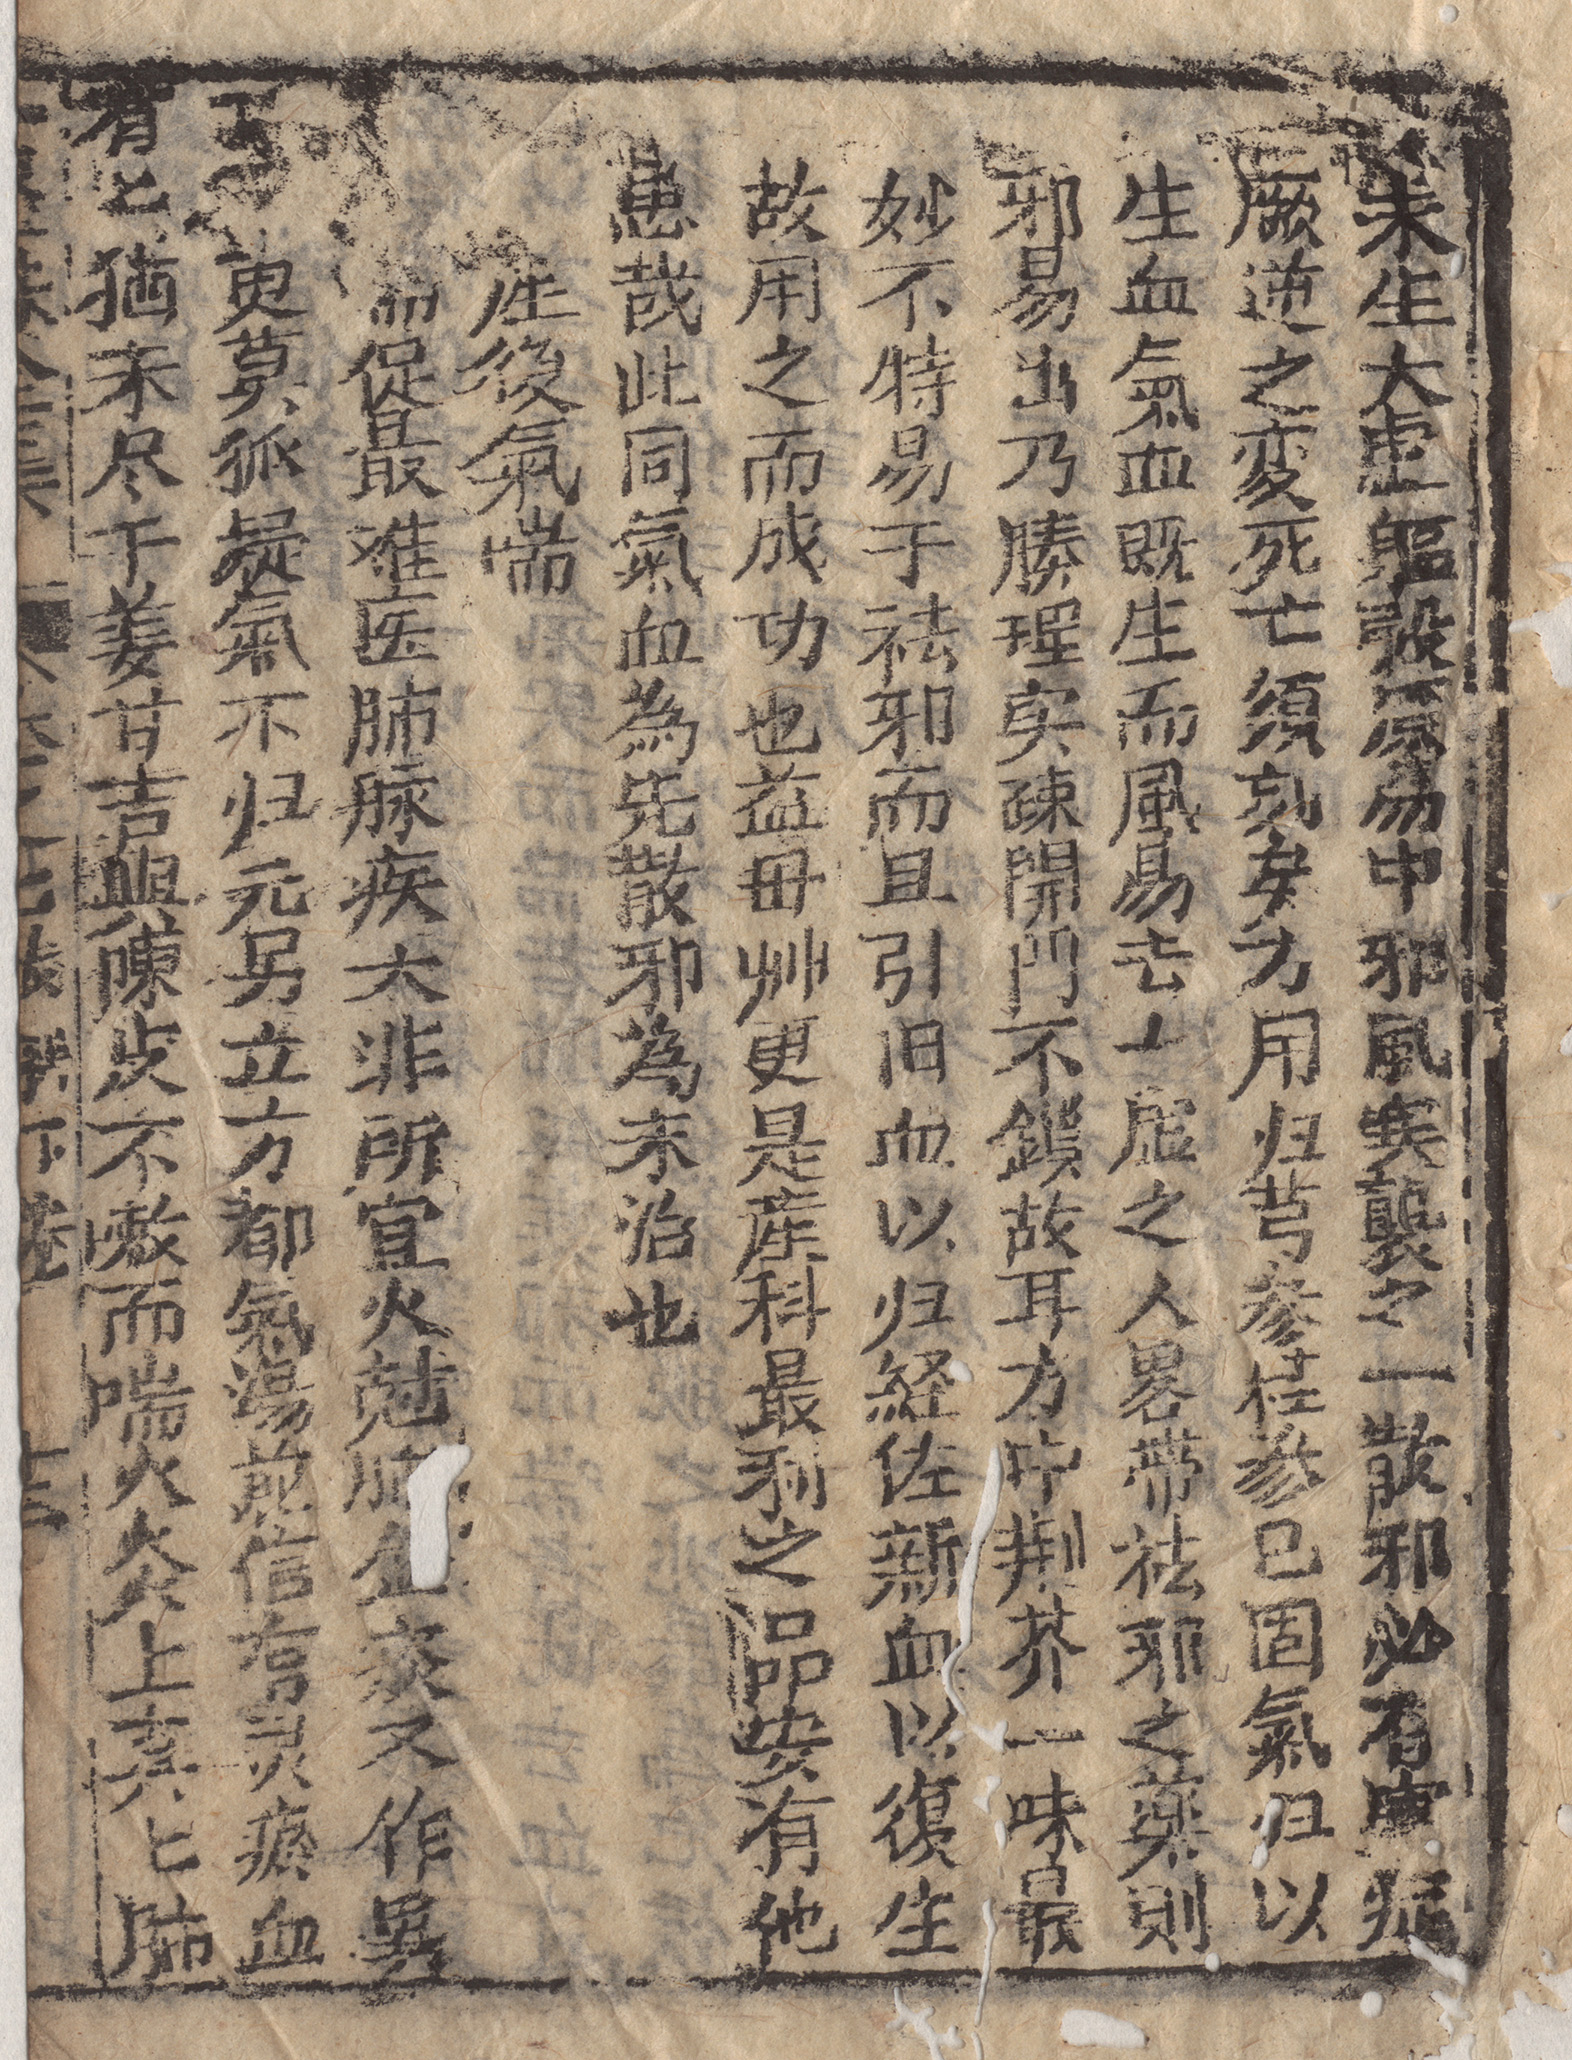 未生大虚軀殼原易中邪風寒襲之一散邪必有虛癍
厥逆之変死亡須刻安方用归芎參桂參已固氣归以
生血氣血既生而風易去大虛之人畧帶祛邪之藥則
邪易出乃腠理实疎開門不鎖故耳方中荆芥一味最
妙不特易于祛邪而且引旧血以归経佐新血以復生
故用之而成功也益毋艸更是産科最利之品安有他
患哉此同氣血為先散邪為末治也
産後氣喘
而促最难医肺脉疾大非所宜火尅肺金痰又作異
更莫狐疑氣不归元另立方都氣湯煎信有灵瘀血
有乚猶未尽干姜甘吉與陳皮不嗽而喘火炎上真乚肺